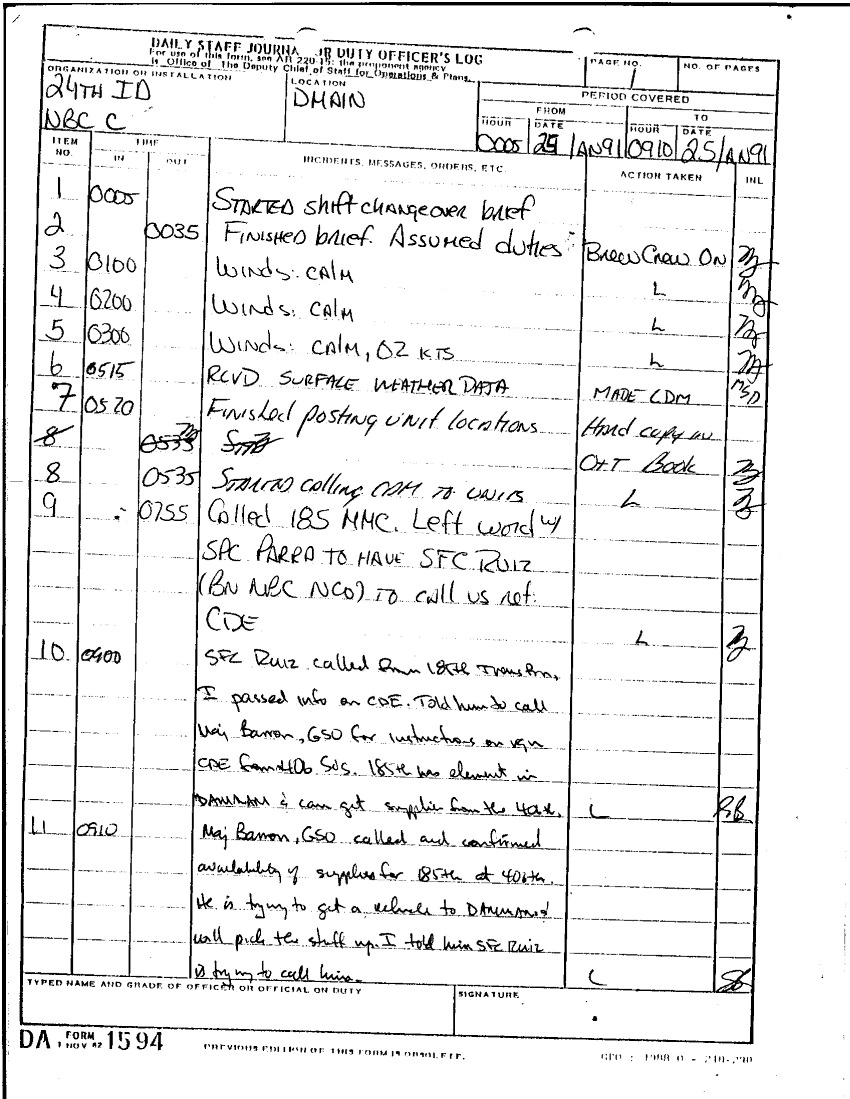 DAILY STAFF JOURNAL OR DUTY OFFICER'S LOG
For use of this form, see AR 220-15; the proponent agency
is Office of The Deputy Chief of Staff for Operations & Plans.
PAGE NO.
1
NO. OF PAGES
ORGANIZATION OR INSTALLATION
24TH ID
NBC C
LOCATION
DMAIN
PERIOD COVERED
FROM
TO
HOUR DATE HOUR DATE
0005 25 JAN91 0910 25JAN91
ITEM NO. TIME IN OUT INCIDENTS, MESSAGES, ORDERS, ETC. ACTION TAKEN INL
1 0005 STARTED shift changeover brief
2 0035 FINISHED brief. Assumed duties Breen Crew ON
3 0100 WINDS: CALM L
4 0200 WINDS: CALM L
5 0300 WINDS: CALM, 02 KTS L
6 0515 RCVD SURFACE WEATHER DATA MADE CDM
7 0520 Finished posting unit locations Hard copy in
8 0535 OLT Book
8 0535 STARTED calling CDM TO UNITS L
9 0755 Called 185 MMC. Left word w/
SPC PARRA TO HAVE SFC RUIZ
(BN NBC NCO) TO call us ref:
CDE L
10 0900 SFC Ruiz called from 185th Trans Bn.
I passed info on CDE. Told him to call
Maj Barron, GSO for instructions on
CDE from 406 185th has element in
DAMMAM & can get supplies from the 406th. L
11 0910 Maj Barron, GSO called and confirmed
availability of supplies for 185th at 406th.
He is trying to get a vehicle to DAMMAM &
will pick the stuff up. I told him SFC Ruiz
is trying to call him. L
TYPED NAME AND GRADE OF OFFICER OR OFFICIAL ON DUTY
SIGNATURE
DA FORM 1 NOV 62 1594
PREVIOUS EDITION OF THIS FORM IS OBSOLETE.